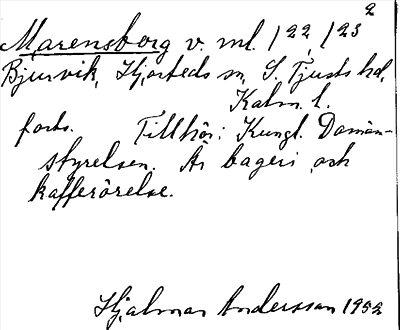 2
Marensborg v. ml. 122, 123
Bjurvik, Hjorteds sn, S. Tjusts hd,
Kalm. l.
forts. Tillhör: Kungl. Domän-
styrelsen. Är bageri och
kafferörelse.
Hjalmar Andersson 1952